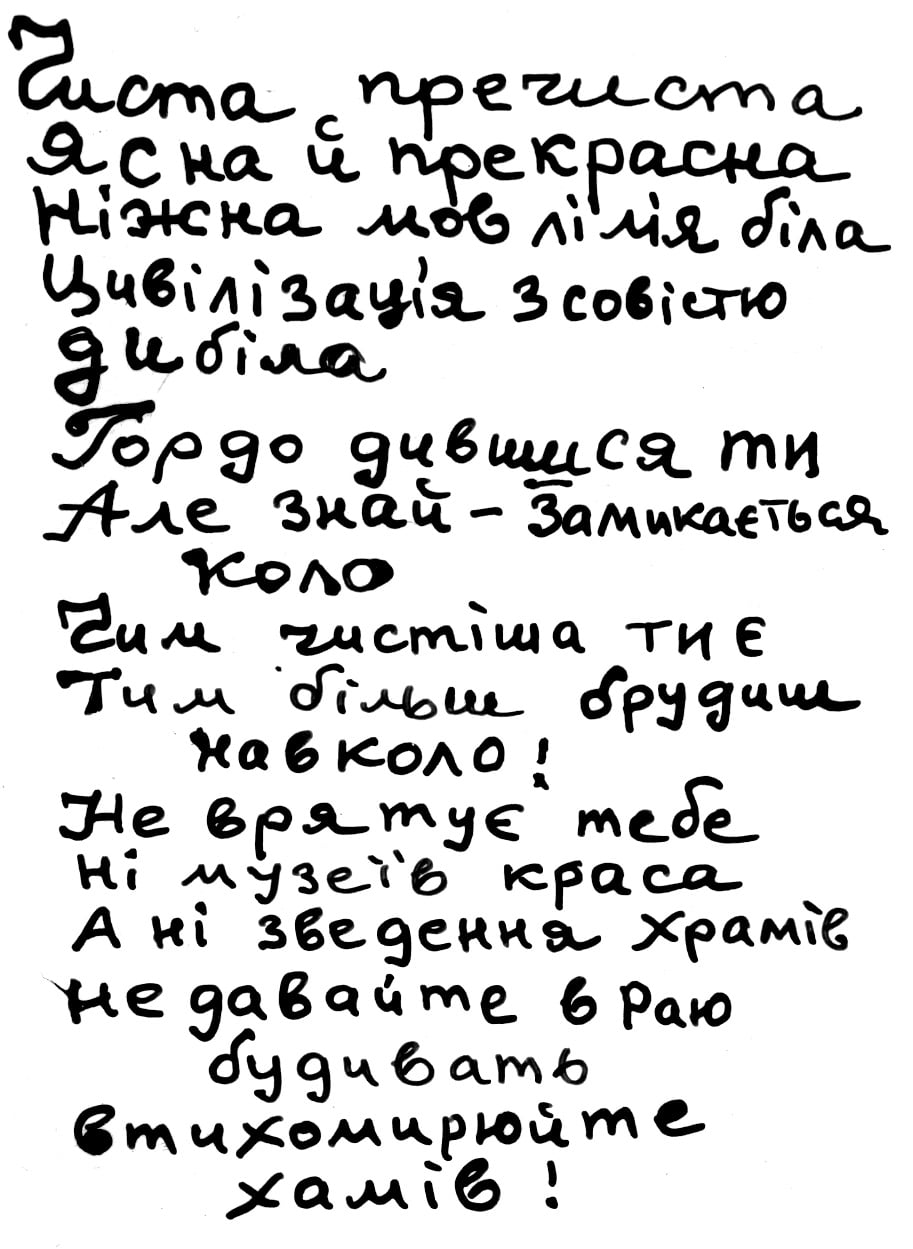 Чиста пречиста
Ясна й прекрасна
Ніжна мов лілія біла
Цивілізація з совістю
дибіла
Гордо дившишся ти
Але знай - Замикається
коло
Чим чистіша ти є
Тим більш брудиш
навколо!
Не врятує тебе
Ні музеїв краса
А ні зведення храмів
Не давайте в Раю
будивать
втихомирюйте
хамів!